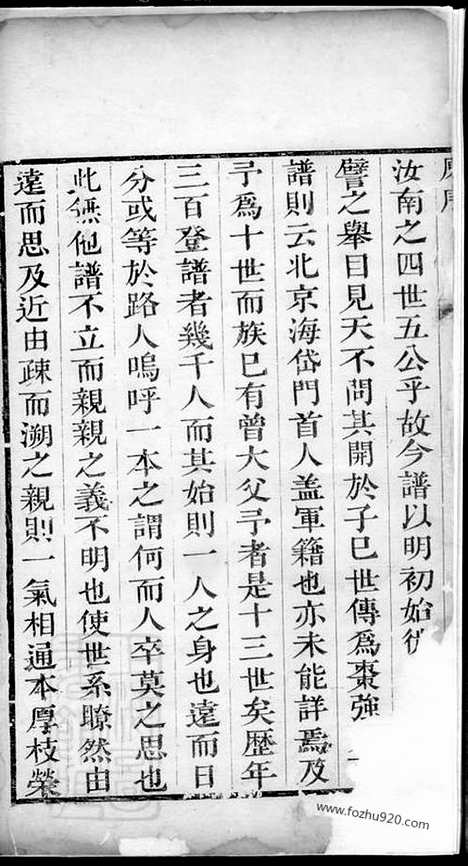 汝南之四世五公乎故今譜以明初始
譬之舉目見天不問其開於子巳世傳為棗強
譜則云北京海岱門首人盖軍籍也亦未能詳焉及
予為十世而族巳有曾大父予者是十三世矣歴年
三百登譜者幾千人而其始則一人之身也遠而日
分或等於路人嗚呼一本之謂何而人卒莫之思也
此無他譜不立而親親之義不明也使世系瞭然由
遠而思及近由疎而溯之親則一氣相通本厚枝榮
www.fozhu920.com